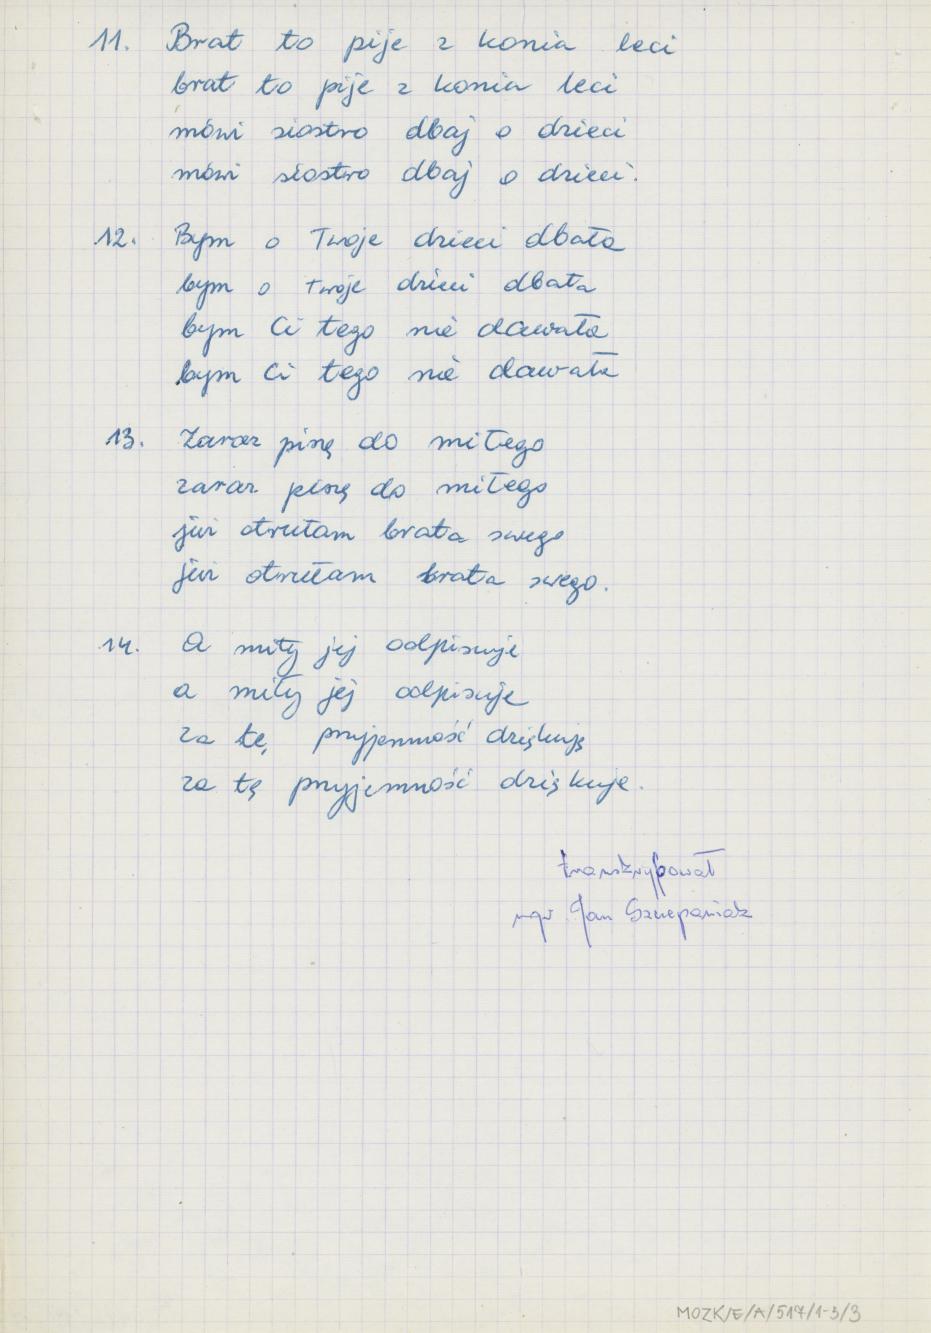 11. Brat to pije z konia leci
brat to pije z konia leci
mówi siostro dbaj o dzieci
mówi siostro dbaj o dzieci.
12. Bym o Twoje dzieci dbała
bym o Twoje dzieci dbała
bym Ci tego nie dawała
bym Ci tego nie dawała
13. Zaraz piszę do miłego
zaraz piszę do miłego
już otrułam brata swego
już otrułam brata swego.
14. A miły jej odpisuje
a miły jej odpisuje
za tę przyjemność dziękuję
za tę przyjemność dziękuje.
transkrybował
mgr Jan Szczepaniak
MOZK/E/A/517/1-3/3